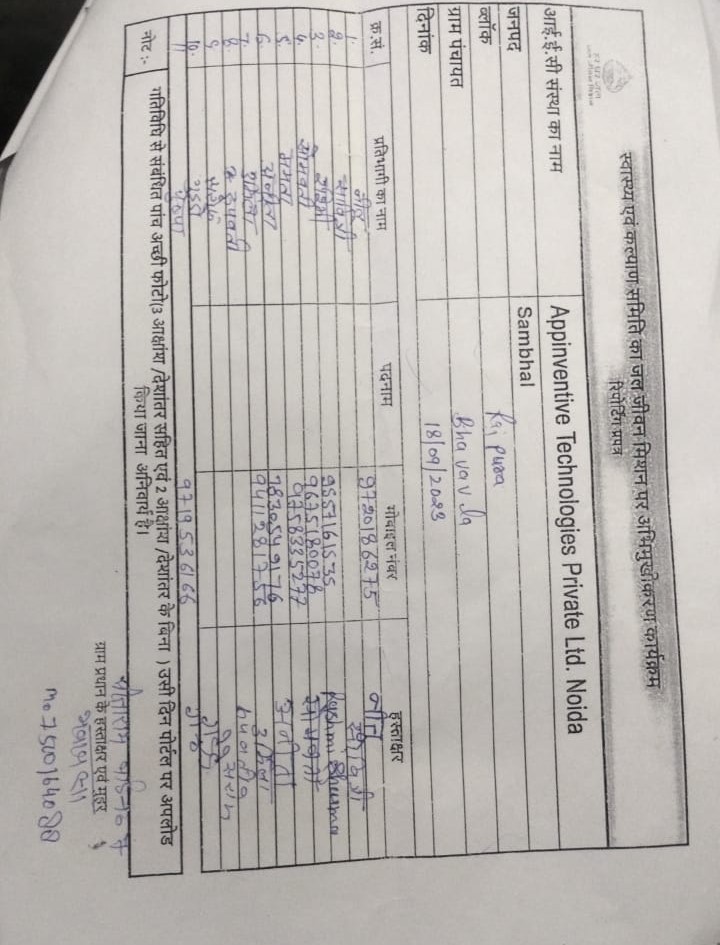 स्वास्थ्य एवं कल्याण समिति का जल जीवन मिशन पर अभिमुखीकरण कार्यक्रम
रिपोर्टिंग प्रपत्र
आई.ई.सी संस्था का नाम Appinventive Technologies Private Ltd. Noida
जनपद Sambhal
ब्लॉक Rajpura
ग्राम पंचायत Bhavavala
दिनांक 18/09/2023
क्र.सं. प्रतिभागी का नाम पदनाम मोबाइल नंबर हस्ताक्षर
1. नीतू 9720186275 नीतू
2. सावित्री सावित्री
3. 9557161535 Rushmi Sharma
4. सोमवती 9675180078 सोमवती
5. ममता 9758335277
6. अनीता 7830549176 अनीता
7. उर्मिला 9411281756 उर्मिला
8.
9.
10. गुड्डो
11. 9719536166
नोट :- गतिविधि से संबंधित पांच अच्छी फोटो(3 आक्षांश /देशांतर सहित एवं 2 आक्षांश /देशांतर के बिना ) उसी दिन पोर्टल पर अपलोड
किया जाना अनिवार्य है।
ग्राम प्रधान के हस्ताक्षर एवं मुहर